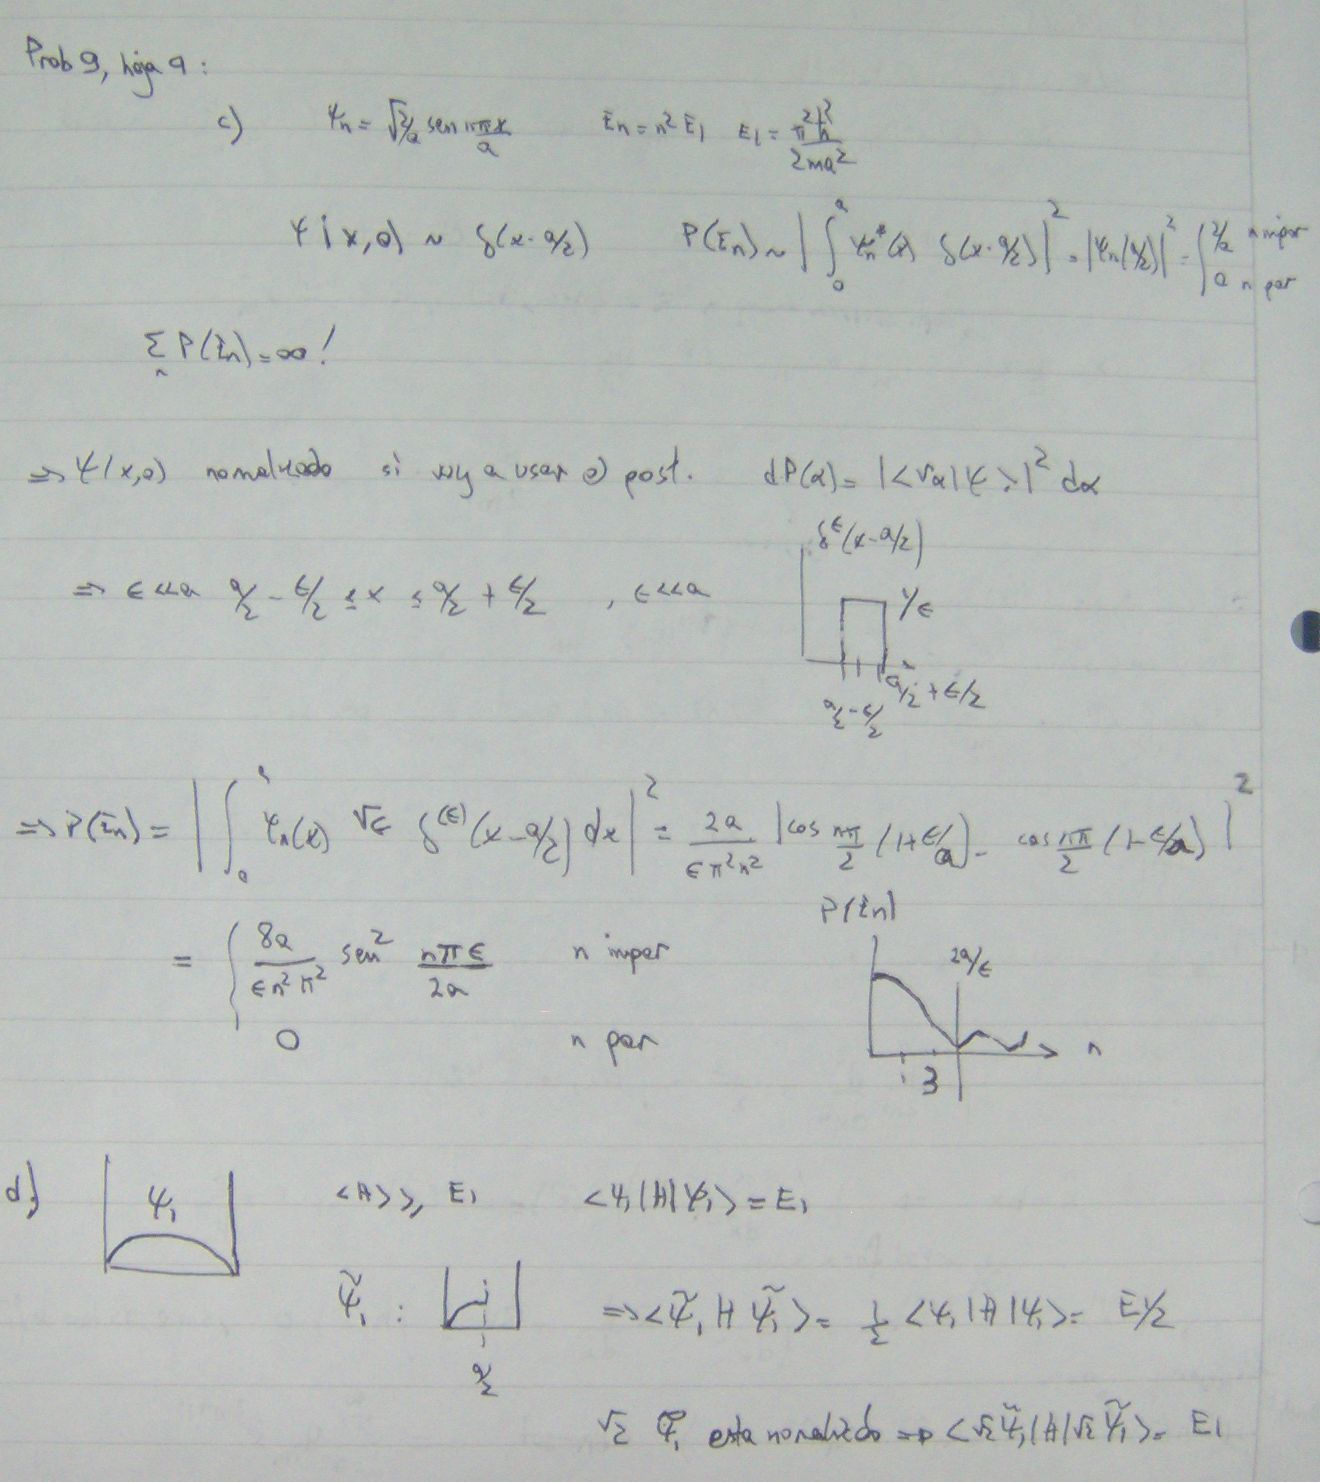 Prob 9, hoja 9:
c) ψn = √2/a sen nπx/a En = n² E1 E1 = π²ħ²/2ma²
Ψ(x,0) ~ δ(x-a/2) P(En) ~ |∫₀ᵃ ψn*(x) δ(x-a/2)|² = |ψn(a/2)|² = { 2/a n impar
0 n par
Σn P(En) = ∞!
⇒ Ψ(x,0) normalizado si voy a usar el post. dP(α) = |<vα|Ψ>|² dα
δ^ε(x-a/2)
⇒ ε<<a a/2 - ε/2 ≤ x ≤ a/2 + ε/2 , ε<<a 1/ε
a/2 + ε/2
a/2 - ε/2
⇒ P(En) = |∫₀ᵃ ψn(x) √ε δ^(ε)(x-a/2) dx|² = 2a/επ²n² |cos nπ/2 (1+ε/a) - cos nπ/2 (1-ε/a)|²
P(En)
= { 8a/εn²π² sen² nπε/2a n impar 2a/ε
0 n par n
1 3
d) ψ1 <H> ≥ E1 <ψ1|H|ψ1> = E1
ψ̃1 : ⇒ <ψ̃1 H ψ̃1> = 1/2 <ψ1|H|ψ1> = E1/2
a/2
√2 ψ̃1 esta normalizado ⇒ <√2 ψ̃1|H|√2 ψ̃1> = E1